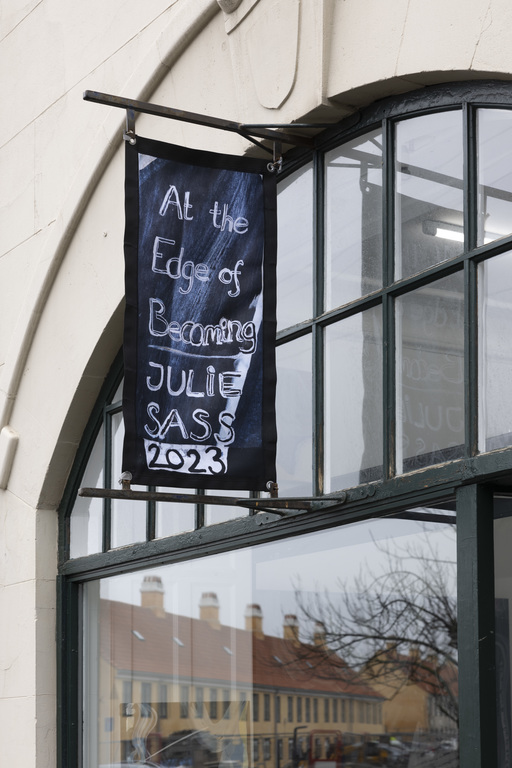 At the
Edge of
Becoming
JULiE
SASS
2023